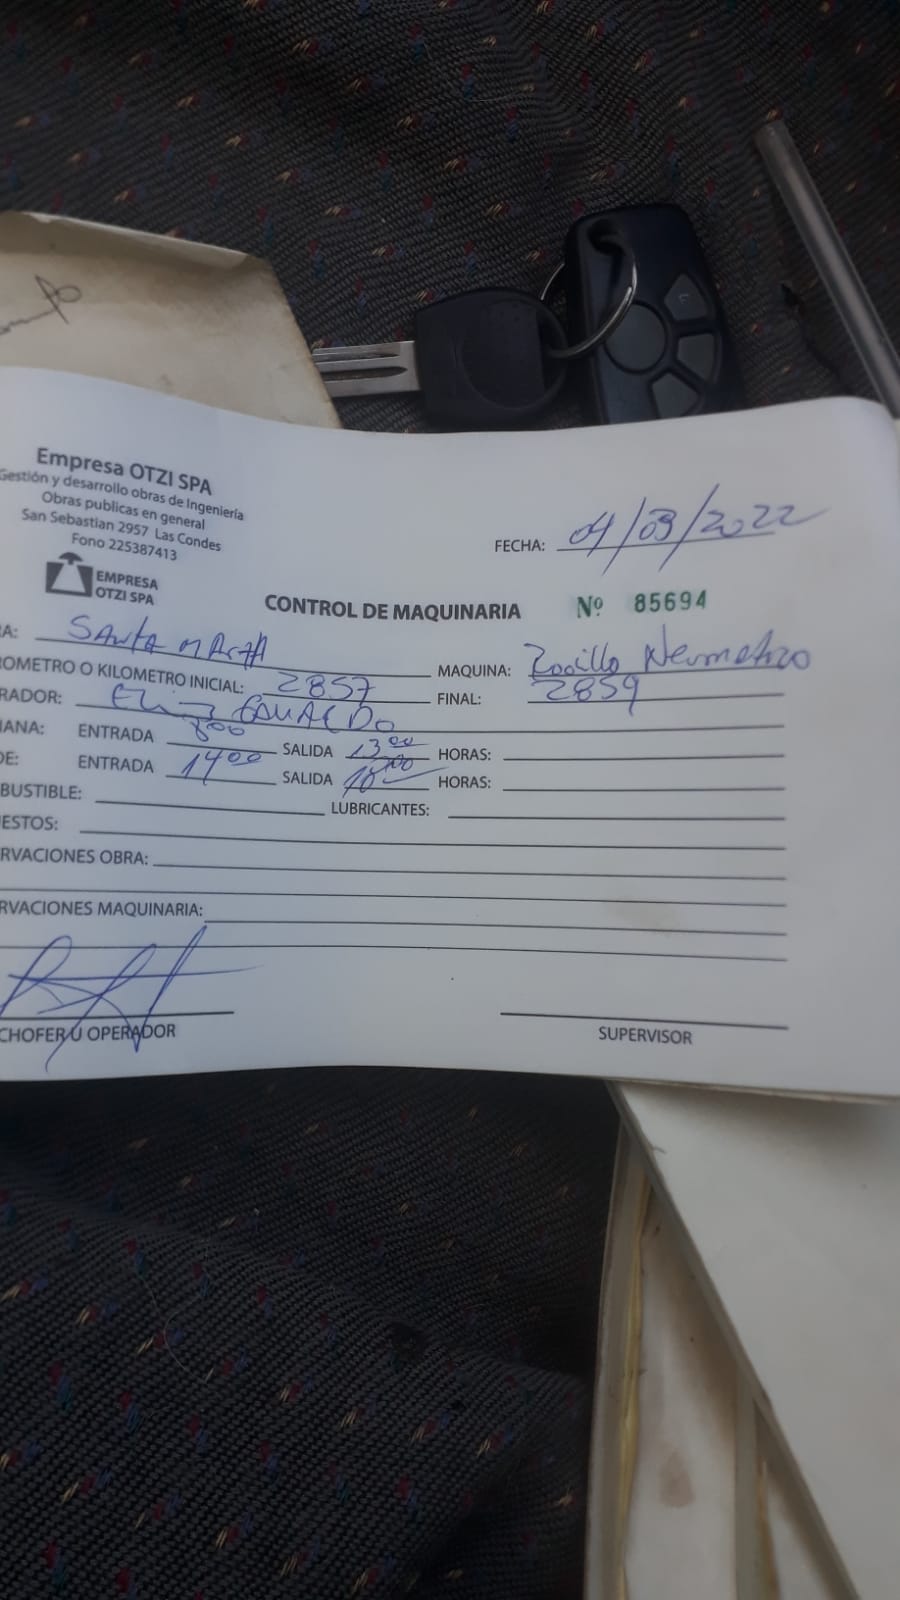 Empresa OTZI SPA
Gestión y desarrollo obras de Ingeniería
Obras publicas en general
San Sebastian 2957 Las Condes
Fono 225387413
EMPRESA
OTZI SPA
FECHA: 04/03/2022
CONTROL DE MAQUINARIA Nº 85694
RA: SANTA MARTA MAQUINA: Rodillo Neumatico
ROMETRO O KILOMETRO INICIAL: 2857 FINAL: 2859
RADOR:
IANA: ENTRADA 8 00 SALIDA 13 00 HORAS:
DE: ENTRADA 14 00 SALIDA 18 00 HORAS:
BUSTIBLE: LUBRICANTES:
ESTOS:
RVACIONES OBRA:
RVACIONES MAQUINARIA:
CHOFER U OPERADOR SUPERVISOR